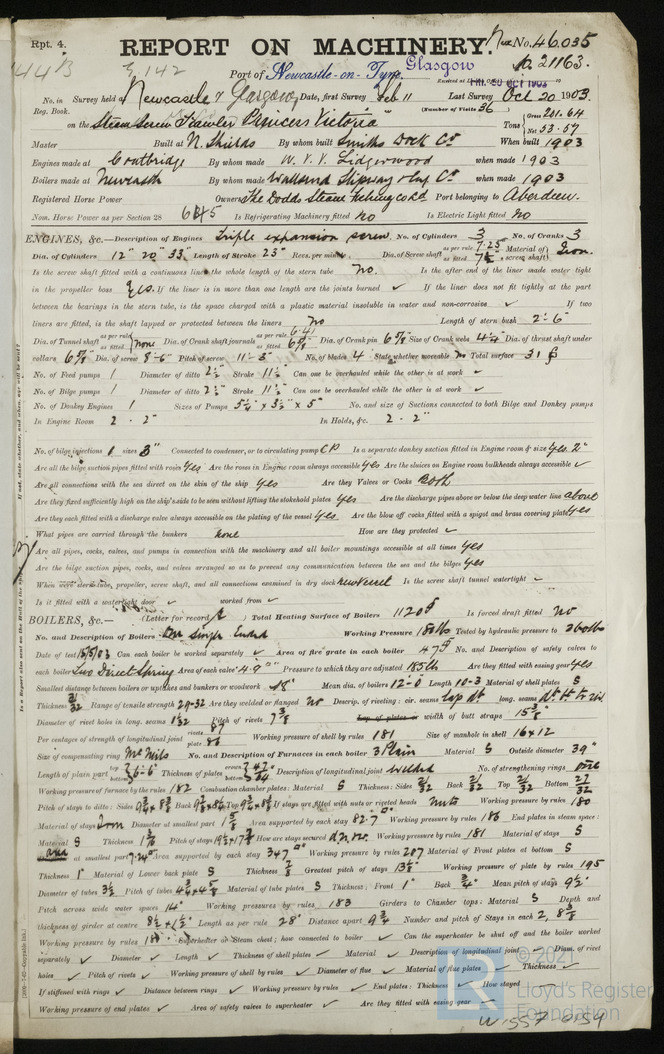 Rpt. 4.
REPORT ON MACHINERY. No. 46.035
Glasgow
No 21163.
Port of Newcastle-on-Tyne
Received at
No. in Survey held at Newcastle & Glasgow Date, first Survey Feb 11 Last Survey Oct 20 1903.
Reg. Book. (Number of Visits 36)
on the Steam Screw Trawler "Princess Victoria" Tons Gross 201.64 Net 53.57
Master Built at N. Shields By whom built Smiths Dock Co When built 1903
Engines made at Coatbridge By whom made W. V. V. Lidgerwood when made 1903
Boilers made at Newcastle By whom made Wallsend Slipway & Eng. Co when made 1903
Registered Horse Power Owners The Dodds Steam Fishing Co Ld Port belonging to Aberdeen.
Nom. Horse Power as per Section 28 Is Refrigerating Machinery fitted No Is Electric Light fitted No
ENGINES, &c.—Description of Engines Triple expansion screw No. of Cylinders 3 No. of Cranks 3
Dia. of Cylinders 12" 20" 33" Length of Stroke 23" Revs. per minute Dia. of Screw shaft as per rule 7.25 as fitted 7½ Material of screw shaft Iron.
Is the screw shaft fitted with a continuous liner the whole length of the stern tube No. Is the after end of the liner made water tight
in the propeller boss Yes. If the liner is in more than one length are the joints burned ✓ If the liner does not fit tightly at the part
between the bearings in the stern tube, is the space charged with a plastic material insoluble in water and non-corrosive ✓ If two
liners are fitted, is the shaft lapped or protected between the liners No Length of stern bush 2'-6"
Dia. of Tunnel shaft as per rule as fitted None Dia. of Crank shaft journals as per rule 6.41 as fitted 6⅝ Dia. of Crank pin 6⅝ Size of Crank webs Dia. of thrust shaft under
collars 6⅝ Dia. of screw 8'-6" Pitch of screw 11'-3" No. of blades 4 State whether moveable No Total surface 31
No. of Feed pumps 1 Diameter of ditto 2½ Stroke 11½ Can one be overhauled while the other is at work ✓
No. of Bilge pumps 1 Diameter of ditto 2½ Stroke 11½ Can one be overhauled while the other is at work ✓
No. of Donkey Engines 1 Sizes of Pumps 5¼" x 3½" x 5" No. and size of Suctions connected to both Bilge and Donkey pumps
In Engine Room 2 - 2" In Holds, &c. 2 - 2"
No. of bilge injections 1 sizes 3" Connected to condenser, or to circulating pump CP Is a separate donkey suction fitted in Engine room & size Yes. 2"
Are all the bilge suction pipes fitted with roses Yes Are the roses in Engine room always accessible Yes Are the sluices on Engine room bulkheads always accessible ✓
Are all connections with the sea direct on the skin of the ship Yes Are they Valves or Cocks Both
Are they fixed sufficiently high on the ship's side to be seen without lifting the stokehold plates Yes Are the discharge pipes above or below the deep water line above
Are they each fitted with a discharge valve always accessible on the plating of the vessel Yes Are the blow off cocks fitted with a spigot and brass covering plate Yes
What pipes are carried through the bunkers None How are they protected ✓
Are all pipes, cocks, valves, and pumps in connection with the machinery and all boiler mountings accessible at all times Yes
Are the bilge suction pipes, cocks, and valves arranged so as to prevent any communication between the sea and the bilges Yes
When were stern tube, propeller, screw shaft, and all connections examined in dry dock New Vessel Is the screw shaft tunnel watertight ✓
Is it fitted with a watertight door ✓ worked from ✓
BOILERS, &c.— (Letter for record) Total Heating Surface of Boilers 1120 Is forced draft fitted No
No. and Description of Boilers One Single Ended Working Pressure 180 lbs Tested by hydraulic pressure to 360 lbs
Date of test 15/5/03 Can each boiler be worked separately ✓ Area of fire grate in each boiler 47 No. and Description of safety valves to
each boiler Two Direct Spring Area of each valve 4.9" Pressure to which they are adjusted 185 lb Are they fitted with easing gear Yes
Smallest distance between boilers or uptakes and bunkers or woodwork 18" Mean dia. of boilers 12'-0 Length 10-3 Material of shell plates S
Thickness Range of tensile strength 28-32 Are they welded or flanged No Descrip. of riveting: cir. seams lap dbl. long. seams
Diameter of rivet holes in long. seams 1 1/32 Pitch of rivets 7⅜ Lap of plates or width of butt straps 15⅜
Per centages of strength of longitudinal joint rivets 87 plate 86 Working pressure of shell by rules 181 Size of manhole in shell 16 x 12
Size of compensating ring McNeils No. and Description of Furnaces in each boiler 3 Plain Material S Outside diameter 39"
Length of plain part top bottom 6'-6" Thickness of plates crown bottom Description of longitudinal joint Welded No. of strengthening rings
Working pressure of furnace by the rules 182 Combustion chamber plates: Material S Thickness: Sides 21/32 Back 21/32 Top 21/32 Bottom 27/32
Pitch of stays to ditto: Sides Back Top If stays are fitted with nuts or riveted heads Nuts Working pressure by rules 180
Material of stays Iron Diameter at smallest part 1⅝ Area supported by each stay 82.7 Working pressure by rules 186 End plates in steam space:
Material S Thickness Pitch of stays How are stays secured Working pressure by rules 181 Material of stays S
at smallest part Area supported by each stay 347 Working pressure by rules 207 Material of Front plates at bottom S
Thickness 1" Material of Lower back plate S Thickness ⅞ Greatest pitch of stays 13½" Working pressure of plate by rules 195
Diameter of tubes 3½ Pitch of tubes Material of tube plates S Thickness: Front 1" Back ¾" Mean pitch of stays 9½"
Pitch across wide water spaces 14" Working pressures by rules 183 Girders to Chamber tops: Material S Depth and
thickness of girder at centre 8½ x 1½" Length as per rule 28" Distance apart 9¾ Number and pitch of Stays in each 2, 8⅜
Working pressure by rules Superheater or Steam chest; how connected to boiler ✓ Can the superheater be shut off and the boiler worked
separately ✓ Diameter ✓ Length ✓ Thickness of shell plates ✓ Material ✓ Description of longitudinal joint Diam. of rivet
holes ✓ Pitch of rivets ✓ Working pressure of shell by rules ✓ Diameter of flue ✓ Material of flue plates ✓ Thickness ✓
If stiffened with rings ✓ Distance between rings ✓ Working pressure by rules ✓ End plates: Thickness How stayed
Working pressure of end plates ✓ Area of safety valves to superheater ✓ Are they fitted with easing gear
© 2021
Lloyd's Register
Foundation
W557-0159